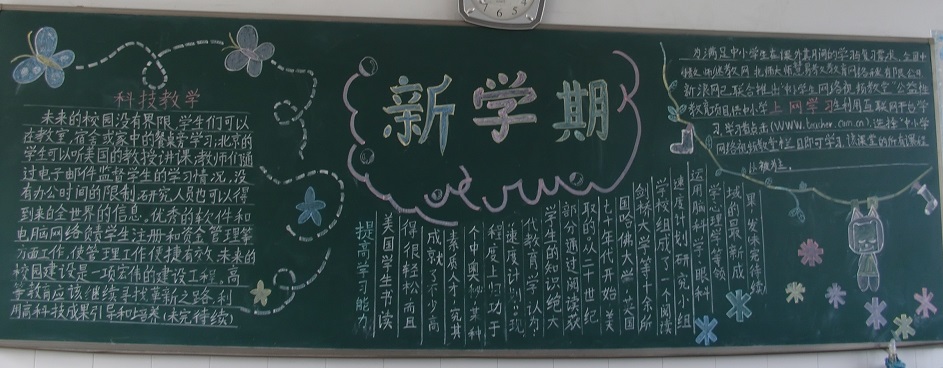 科技教学
未来的校园没有界限,学生们可以
在教室,宿舍或家中的餐桌旁学习;北京的
学生可以听美国的教授讲课;教师们通
过电子邮件监督学生的学习情况,没
有办公时间的限制;研究人员也可以得
到来自全世界的信息。优秀的软件和
电脑网络使学生注册和资金管理等
方面工作,使管理工作便捷有效.未来的
校园建设是一项宏伟的建设工程。高
等教育应该继续寻找革新之路,利
用高科技成果引导和培养(未完待续)
新学期
提高学习能力
美国学生书读
得很轻松而且
成就了不少高
素质人才,究其
个中奥秘,某种
程度上归功于
“速度计划”现
代教育学认为:
学生的知识绝大
部分通过阅读获
取的,从二十世纪
七十年代开始,美
国哈佛大学、英国
剑桥大学等十余所
学校组成了一个阅读
速度计划,研究小组
运用脑科学、眼科
学、心理学等领
域的最新成
果,发 待续
为满足中小学生在课外 间的学习与复习需求,全国中
教师教育网 网络 有限公司
新浪网已联合推出“中小学生网络视频教室”公益性
教育项目,供中小学 上网学习 利用互联网平台学
习.学习者点击(www. .com.cn)选择“中小学
网络视频教室 即可学习 课堂的所有课程